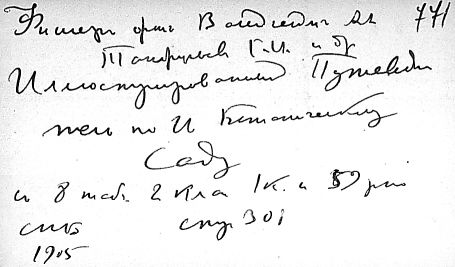 Фишер фон Вальдгейм АА 771
Танфильев Г.И. и др
Иллюстрированный Путеводи
тель по И Ботаническому
Саду
с 8 таб. 2 пла 1 к. и 59 рис
СПБ стр. 301
1905